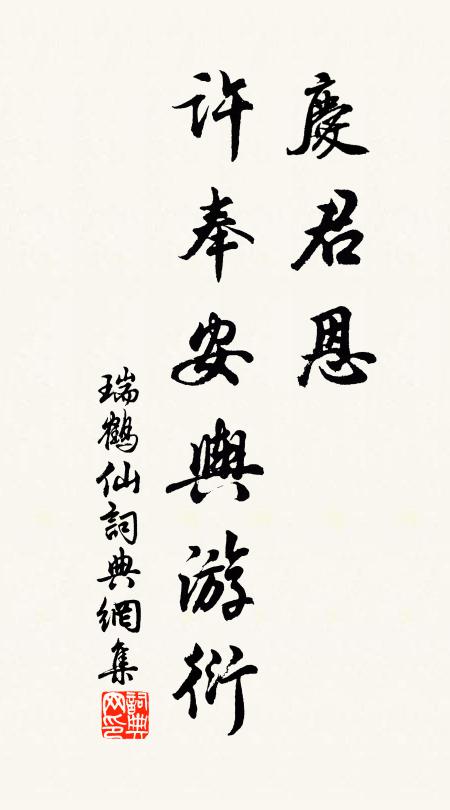 慶君恩
許奉安輿游衍
瑞鶴仙詞典網集
詞典网印